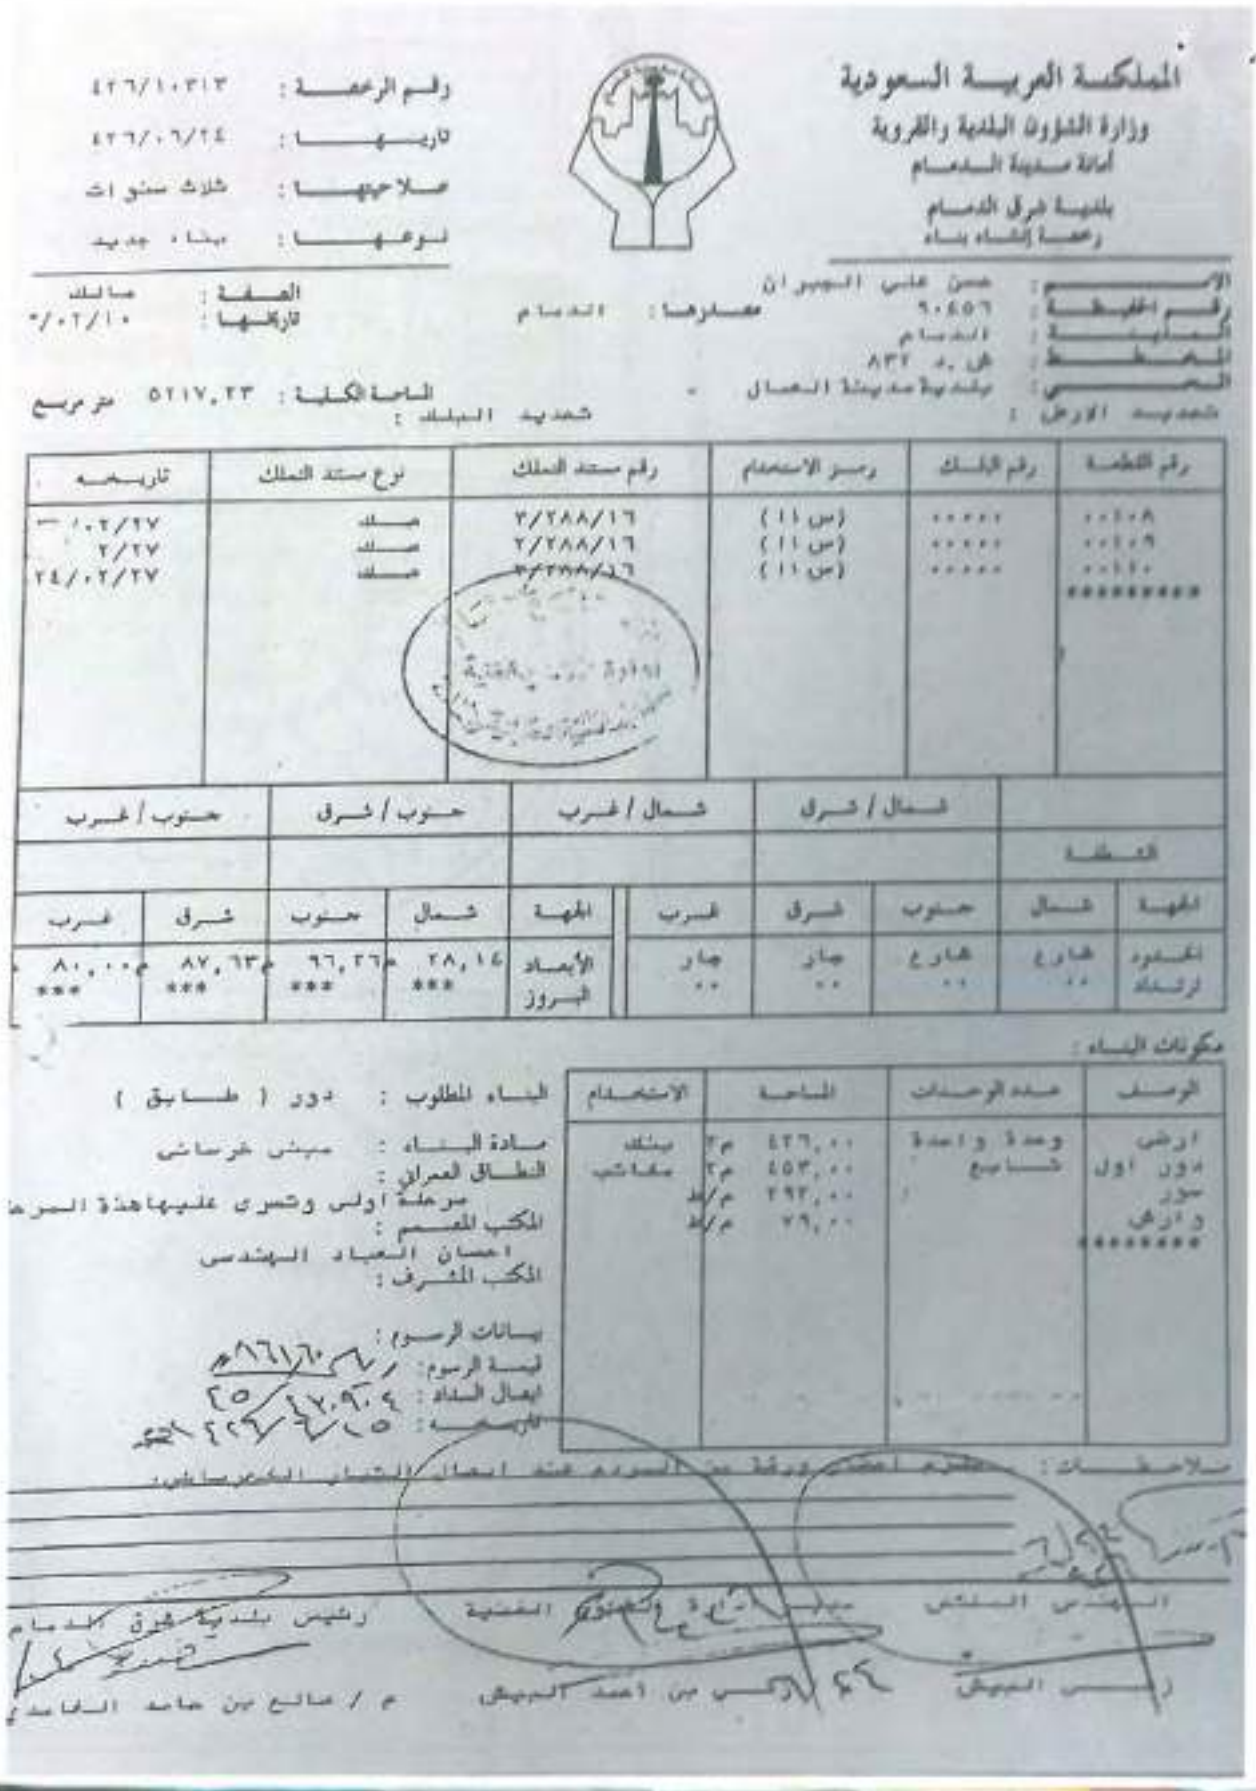 المملكة العربية السعودية
وزارة الشؤون البلدية والقروية
أمانة مدينة الدمام
بلدية شرق الدمام
رخصة إنشاء بناء
رقم الرخصة : ٤٢٦/١٠٣١٣
تاريخها : ٤٢٦/٠٦/٢٤
صلاحيتها : ثلاث سنوات
نوعها : بناء جديد
الاسم : حسن علي الجبران
الصفة : مالك
رقم الحفيظة : ٩٠٤٥٦ مصدرها : الدمام تاريخها : /٠٢/١٠
المدينة : الدمام
المخطط : ش.د ٨٣٢
الحي : بلدية مدينة العمال - المساحة الكلية : ٥٢١٧,٢٣ متر مربع
تحديد الارض : تحديد البلك :
رقم القطعة رقم البلك رمز الاستخدام رقم مستند التملك نوع مستند التملك تاريخه
٠٠١٠٨ ٠٠٠٠٠ (س ١١) ٣/٢٨٨/١٦ صك ٠٢/٢٧
٠٠١٠٩ ٠٠٠٠٠ (س ١١) ٢/٢٨٨/١٦ صك ٢/٢٧
٠٠١١٠ ٠٠٠٠٠ (س ١١) ٣/٢٨٨/١٦ صك ٢٤/٠٢/٢٧
*********
شمال / شرق شمال / غرب جنوب / شرق جنوب / غرب
الشطفة
الجهة شمال جنوب شرق غرب الجهة شمال جنوب شرق غرب
الحدود شارع شارع جار جار الأبعاد ٢٨,١٤ م ٩٦,٢٦ م ٨٧,٦٣ م ٨٠,٠٠ م
ارتداد ٠٠ ٠٠ ٠٠ ٠٠ البروز *** *** *** ***
مكونات البناء :
الوصف عدد الوحدات المساحة الاستخدام
ارضي وحدة واحدة ٤٢٦,٠٠ م٢ بنك
دور اول شايع ٤٥٣,٠٠ م٢ مكاتب
سور ٢٩٢,٠٠ م/ط
وارش ٧٩,٠٠ م/ط
********
البناء المطلوب : دور ( طابق )
مادة البناء : مبنى خرساني
النطاق العمراني :
مرحلة اولى وتسري عليها هذة المرح
المكتب المصمم :
احسان العباد الهندسي
المكتب المشرف :
بيانات الرسوم :
قيمة الرسوم :
ايصال السداد :
تاريخه :
ملاحظات : احضار ورقة من عند ايصال التيار الكهربائي.
المهندس
الفنية
رئيس بلدية شرق الدمام
بن احمد
م / صالح بن حامد الغامدي